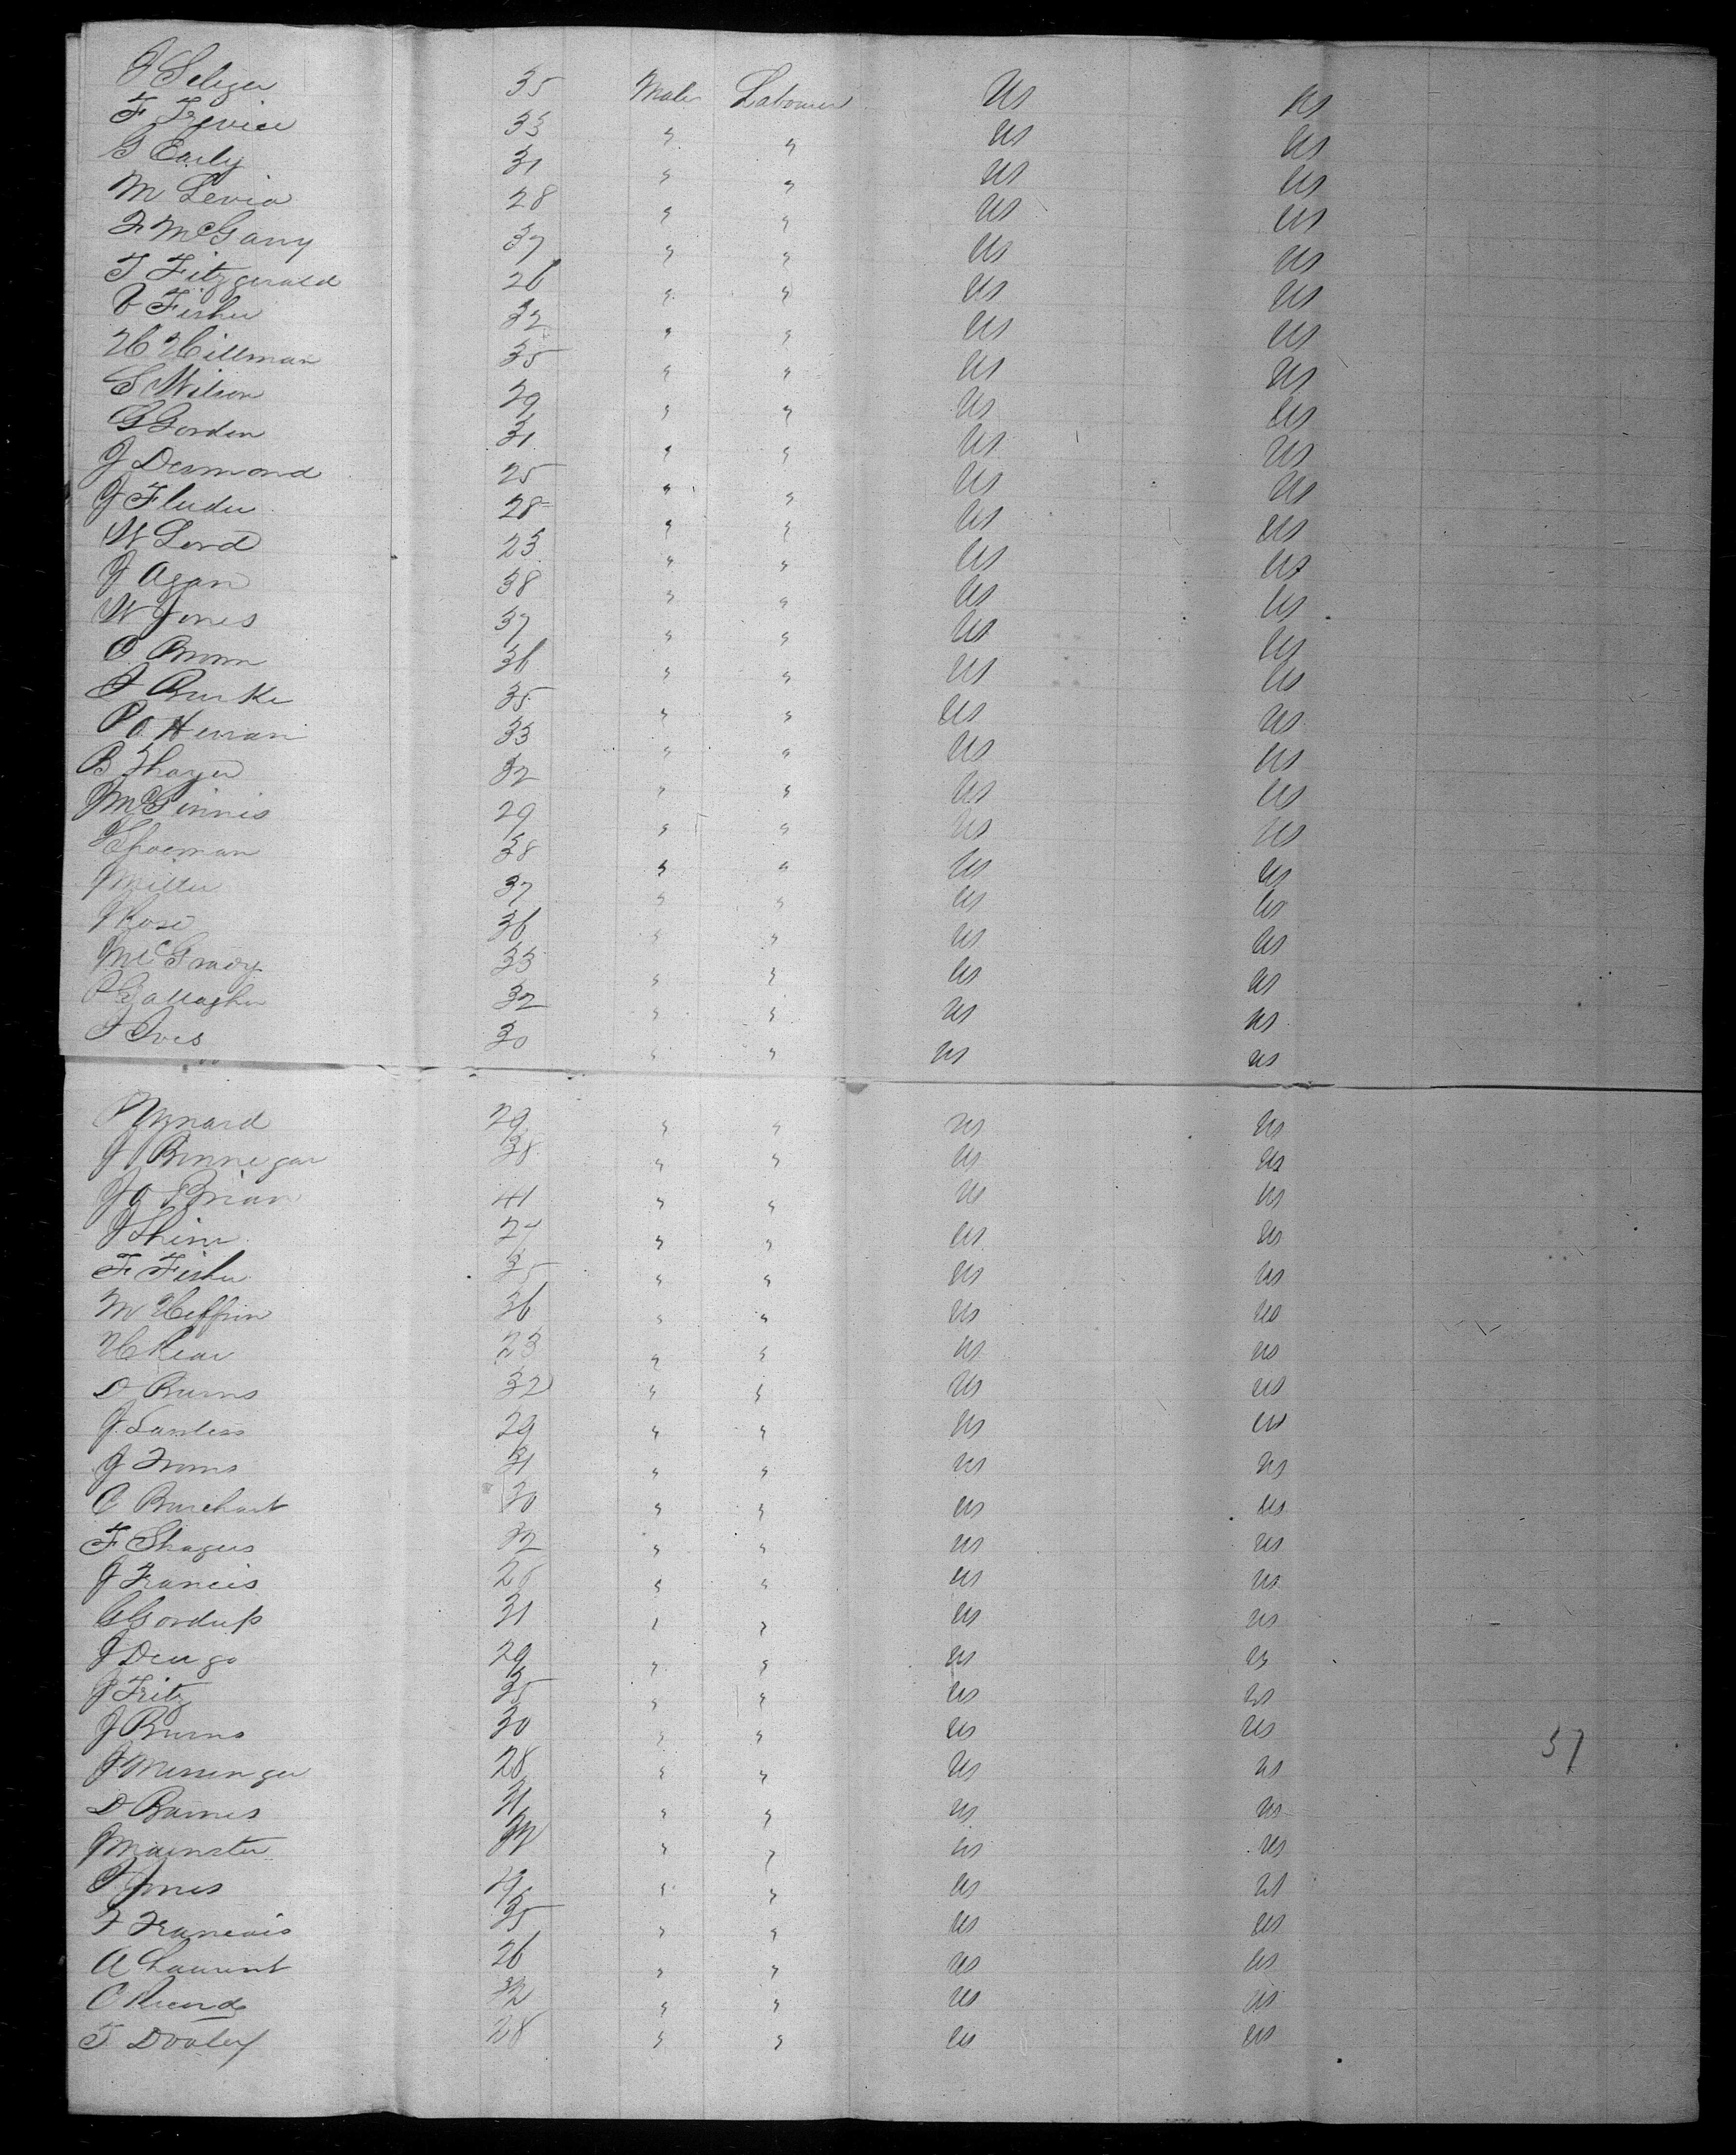 J Selizer 35 Male Labourer US US
F Trevice 33 " " US US
G Early 31 " " US US
M Levia 28 " " US US
F McGarry 37 " " US US
T Fitzgerald 26 " " US US
V Fisher 32 " " US US
H Hillman 35 " " US US
S Wilson 29 " " US US
G Gorden 31 " " US US
J Desmond 25 " " US US
J Fluder 28 " " US US
W Lord 23 " " US US
J Agan 38 " " US US
W Jones 37 " " US US
O Brown 36 " " US US
J Burke 35 " " US US
P O Herran 33 " " US US
B Thayer 32 " " US US
J McGinnis 29 " " US US
38 " " US US
J Miller 37 " " US US
J Rose 36 " " US US
M McGrady 33 " " US US
P Gallagher 32 " " US US
J Ives 30 " " US US
29 " " US US
J Binnegar 38 " " US US
J O Brian 41 " " US US
J Shine 27 " " US US
F Fisher 35 " " US US
M Heffrin 36 " " US US
H Kear 23 " " US US
D Burns 32 " " US US
J Lawless 29 " " US US
J Froms 31 " " US US
C Burchart 30 " " US US
F Shagers 32 " " US US
J Francis " " US US
G Gordup 31 " " US US
J Dengo 29 " " US US
J Fritz 35 " " US US
J Burns 30 " " US US
J Messenger 28 " " US US 57
D Barnes 31 " " US US
J Mainster " " US US
P Jones " " US US
F Francois 35 " " US US
A Laurent 26 " " US US
C Ricard 32 " " US US
T Dooley 28 " " US US